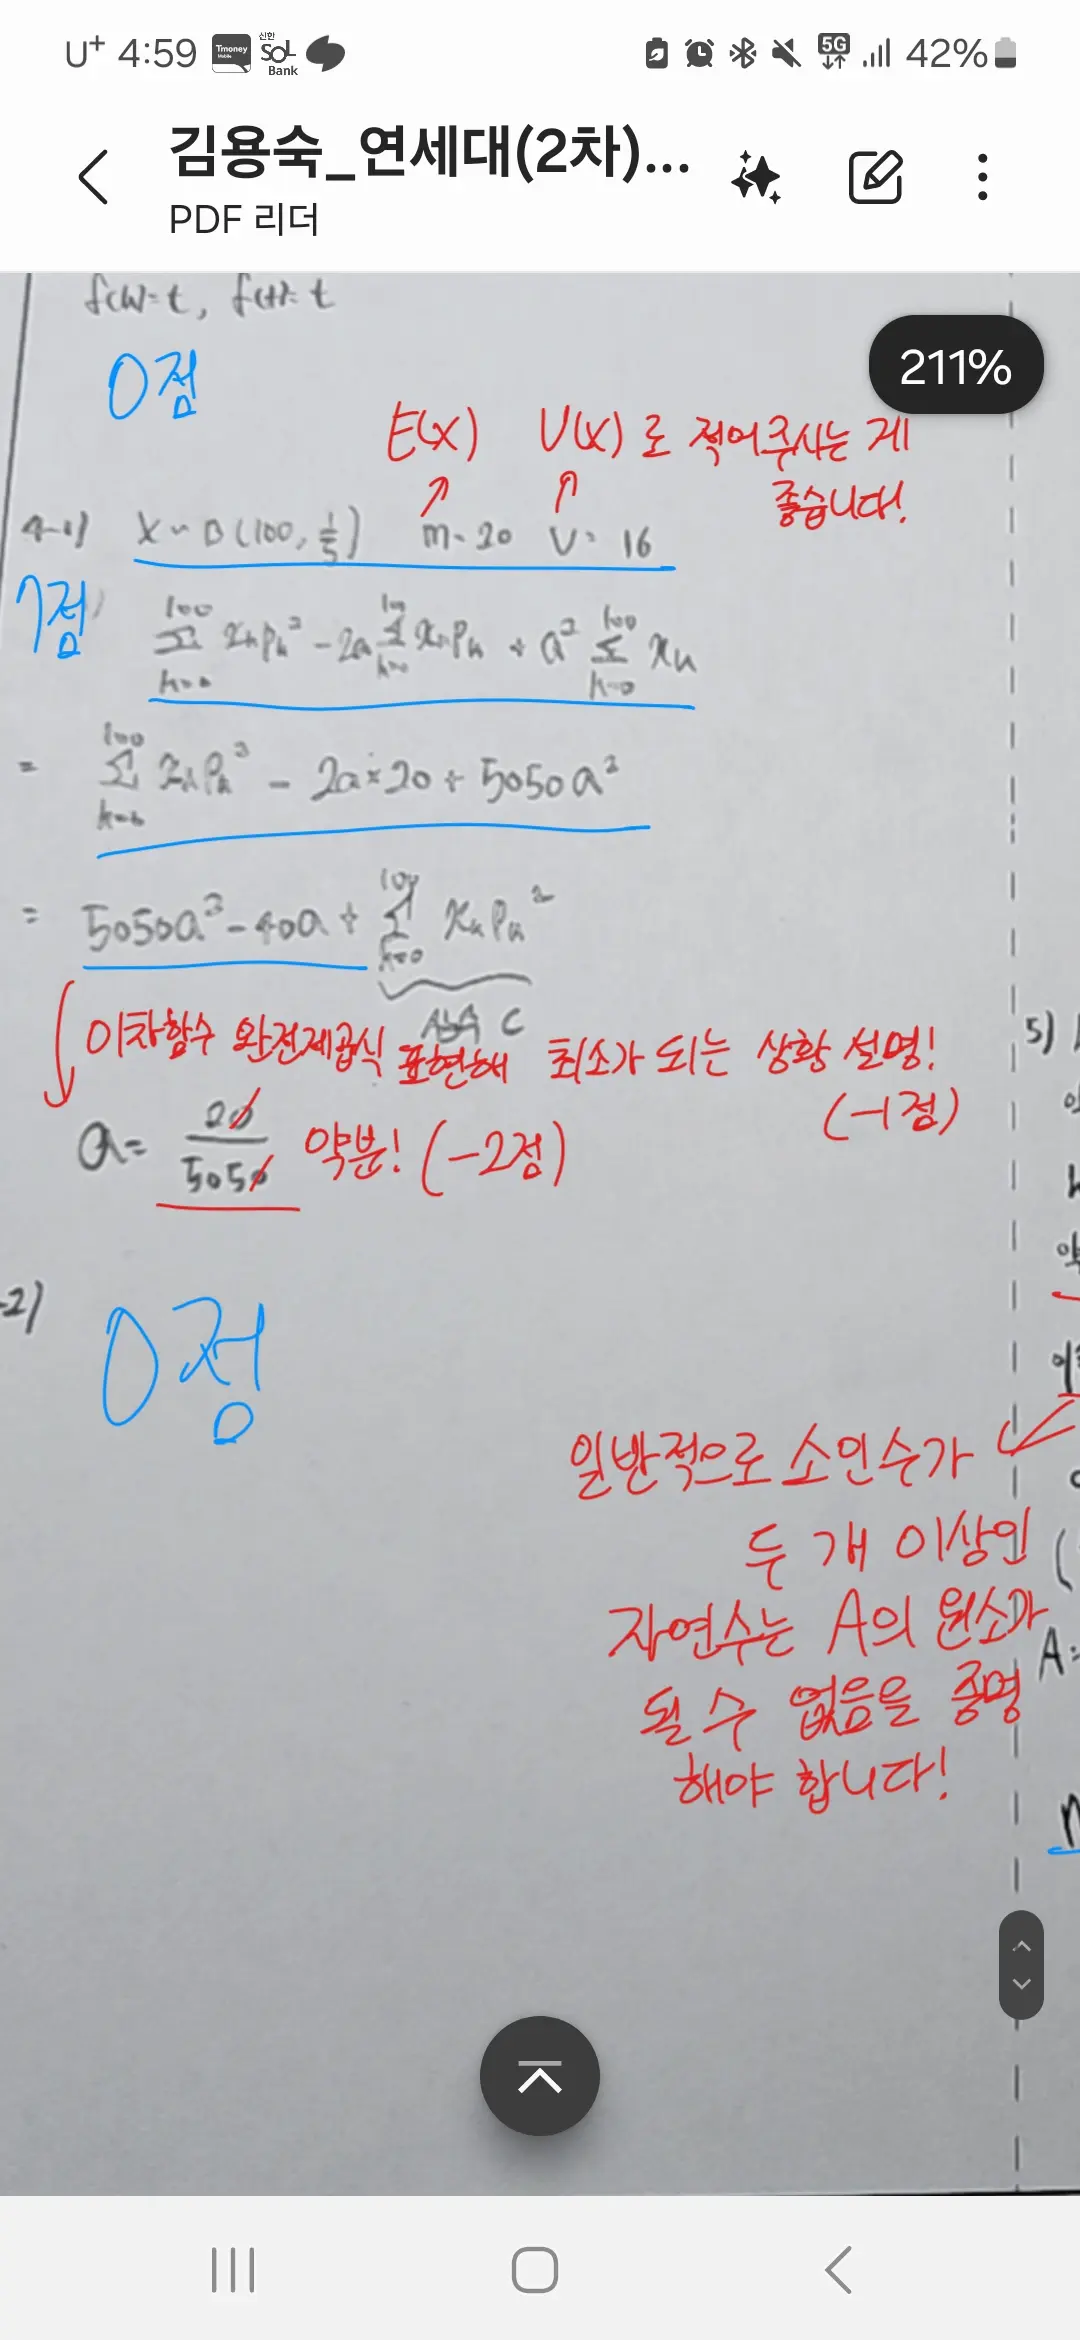 U+ 4:59 Tmoney Mobile 신한 SOL Bank 5G 42%
김용숙_연세대(2차)...
PDF 리더
211%
f(t)=t
0점
E(x) V(x)로 적어주시는 게
좋습니다!
4-1) X~B(100, 1/5) m=20 V=16
7점
100 Σ k=0 xₖpₖ² - 2a 100 Σ k=0 xₖpₖ + a² 100 Σ k=0 xₖ
= 100 Σ k=0 xₖPₖ² - 2a×20 + 5050a²
= 5050a² - 40a + 100 Σ k=0 xₖPₖ²
상수 C
이차함수 완전제곱식 표현해 최소가 되는 상황 설명!
(-1점)
a= 20/5050 약분! (-2점)
-2)
0점
5)
일반적으로 소인수가
두 개 이상인
자연수는 A의 원소가
될 수 없음을 증명
해야 합니다!
A=
n